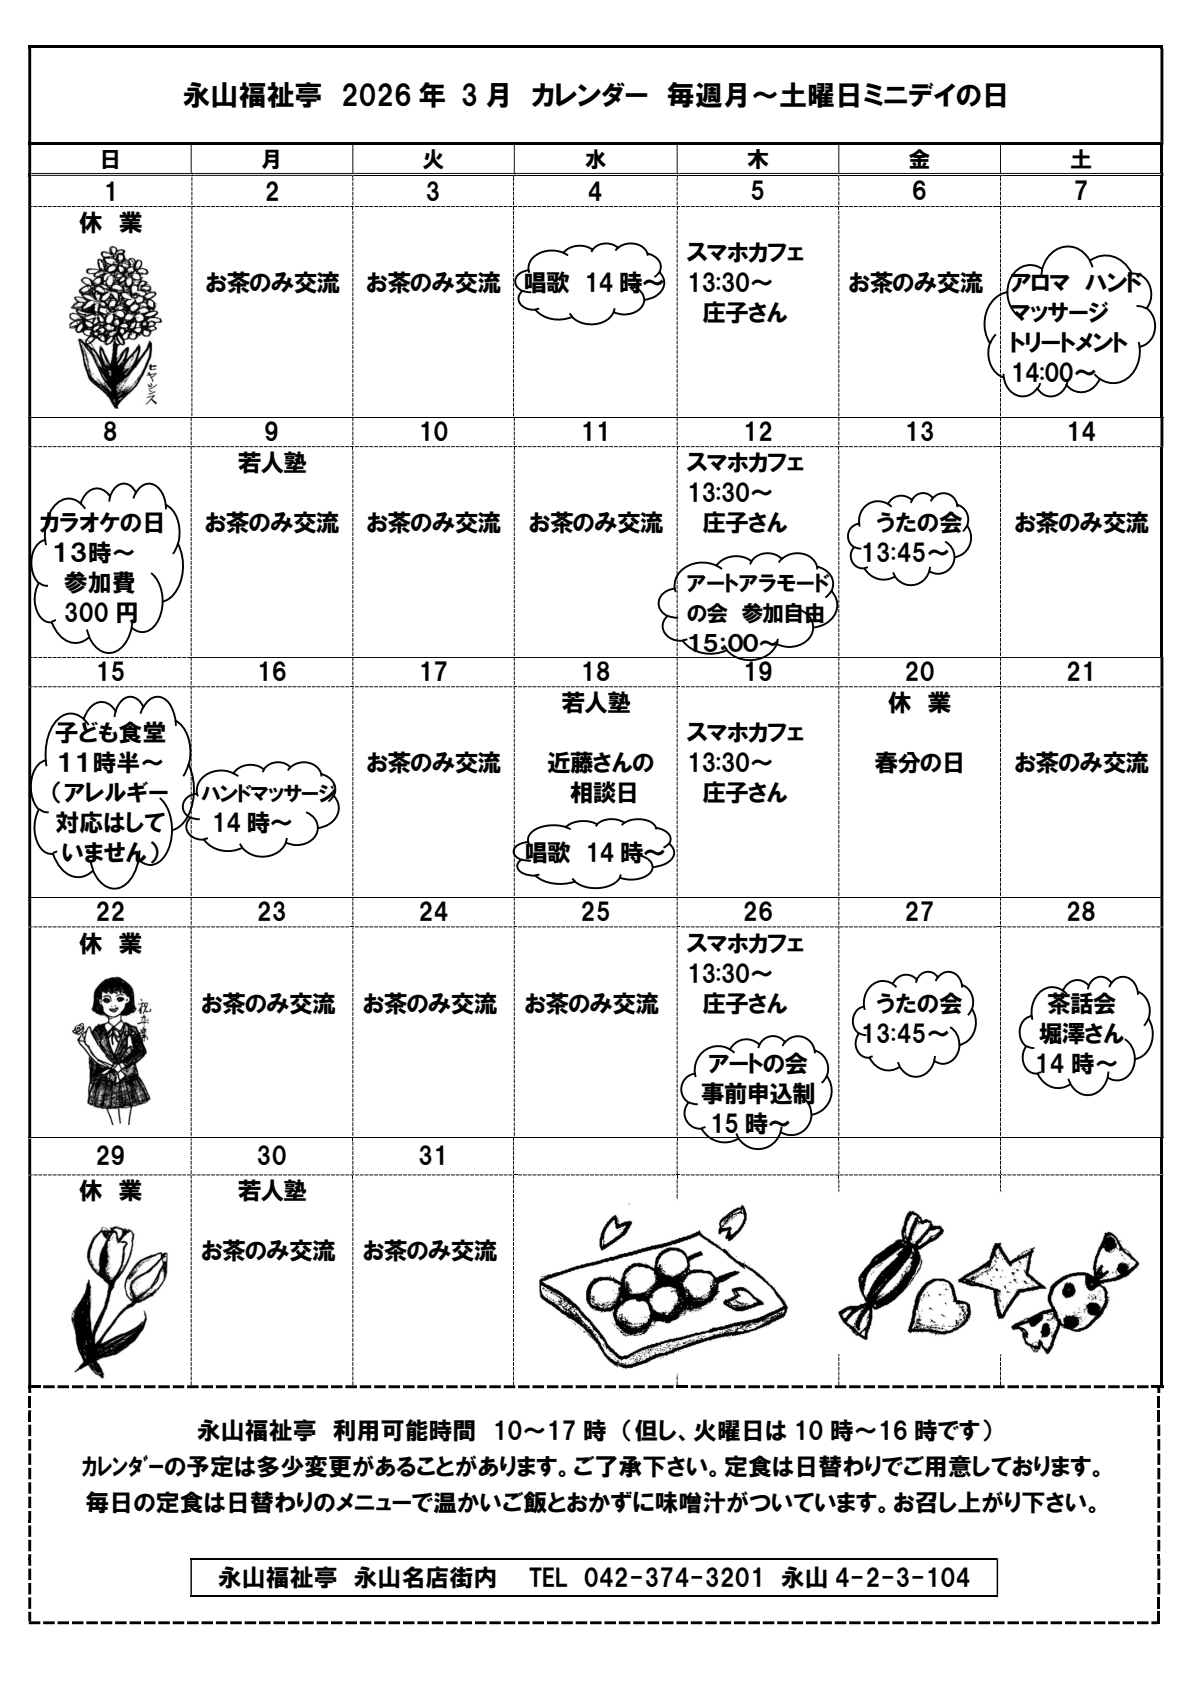 永山福祉亭　2026年 3月　カレンダー　毎週月～土曜日ミニデイの日
日 月 火 水 木 金 土
1 2 3 4 5 6 7
休　業
お茶のみ交流
お茶のみ交流
唱歌　14時～
スマホカフェ
13:30～
庄子さん
お茶のみ交流
アロマ　ハンド
マッサージ
トリートメント
14:00～
ヒヤシンス
8 9 10 11 12 13 14
カラオケの日
13時～
参加費
300円
若人塾
お茶のみ交流
お茶のみ交流
お茶のみ交流
スマホカフェ
13:30～
庄子さん
アートアラモード
の会　参加自由
15:00～
うたの会
13:45～
お茶のみ交流
15 16 17 18 19 20 21
子ども食堂
11時半～
（アレルギー
対応はして
いません）
ハンドマッサージ
14時～
お茶のみ交流
若人塾
近藤さんの
相談日
唱歌　14時～
スマホカフェ
13:30～
庄子さん
休　業
春分の日
お茶のみ交流
22 23 24 25 26 27 28
休　業
祝卒業
お茶のみ交流
お茶のみ交流
お茶のみ交流
スマホカフェ
13:30～
庄子さん
アートの会
事前申込制
15時～
うたの会
13:45～
茶話会
堀澤さん
14時～
29 30 31
休　業
若人塾
お茶のみ交流
お茶のみ交流
永山福祉亭　利用可能時間　10～17時（但し、火曜日は10時～16時です）
ｶﾚﾝﾀﾞｰの予定は多少変更があることがあります。ご了承下さい。定食は日替わりでご用意しております。
毎日の定食は日替わりのメニューで温かいご飯とおかずに味噌汁がついています。お召し上がり下さい。
永山福祉亭　永山名店街内　TEL　042-374-3201　永山4-2-3-104